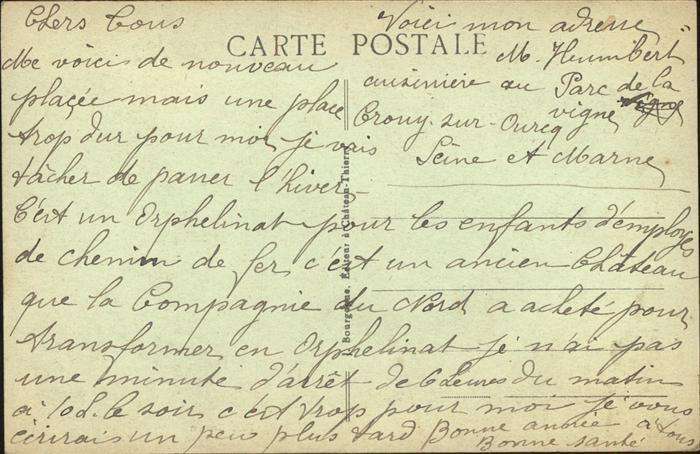 Chers Tous
Me voici de nouveau
placée mais une place
trop dur pour moi je vais
tacher de passer l'hiver
C'est un Orphelinat pour les enfants d'employes
de chemin de fer c'est un ancien Château
que la Compagnie du Nord a acheté pour
transformer en Orphelinat je n'ai pas
une minute d'arrêt de 6 heures du matin
à 10 h. le soir c'est trop pour moi je vous
écrirais un peu plus tard Bonne année a tous
Bonne santé
CARTE POSTALE
Voici mon adresse
M. Humbert
cuisinière au Parc de la
vigne
Crouy-sur-Ourcq
Seine et Marne
Bourgogne, Éditeur à Château-Thierry